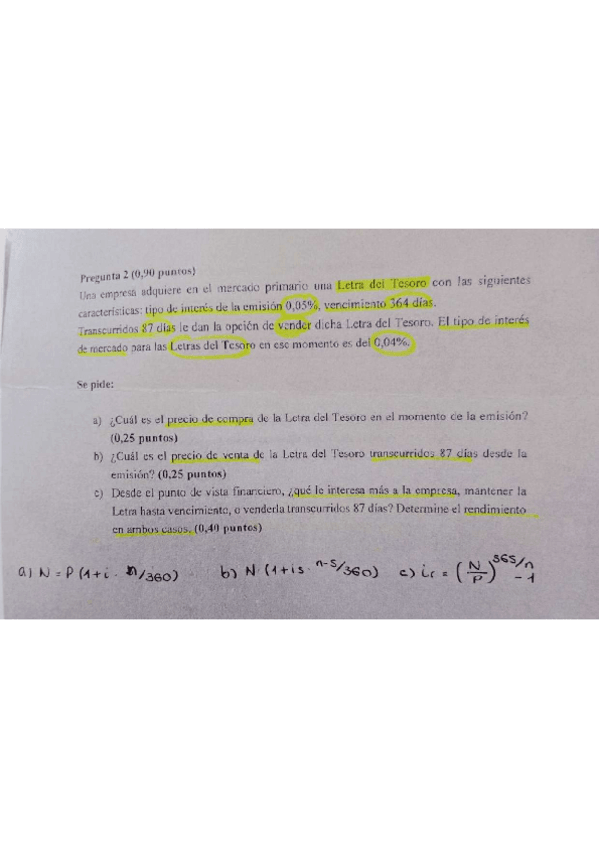 Pregunta 2 (0,90 puntos)
Una empresa adquiere en el mercado primario una Letra del Tesoro con las siguientes
características: tipo de interés de la emisión 0,05%, vencimiento 364 días.
Transcurridos 87 días le dan la opción de vender dicha Letra del Tesoro. El tipo de interés
de mercado para las Letras del Tesoro en ese momento es del 0,04%.
Se pide:
a) ¿Cuál es el precio de compra de la Letra del Tesoro en el momento de la emisión?
(0,25 puntos)
b) ¿Cuál es el precio de venta de la Letra del Tesoro transcurridos 87 días desde la
emisión? (0,25 puntos)
c) Desde el punto de vista financiero, ¿qué le interesa más a la empresa, mantener la
Letra hasta vencimiento, o venderla transcurridos 87 días? Determine el rendimiento
en ambos casos. (0,40 puntos)
a) N = P (1 + i · n/360) b) N · (1 + is · n-s/360) c) ir = (N/P)^365/n - 1